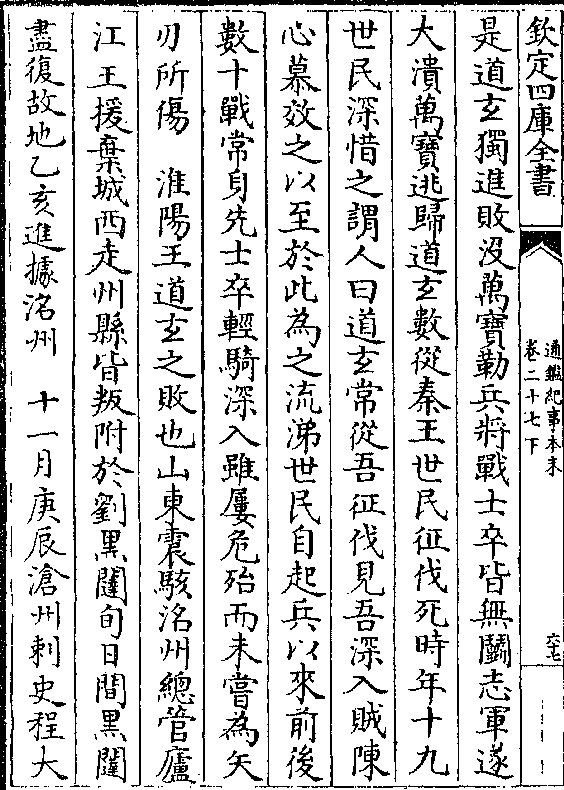 欽定四庫全書
通鑑紀事本末
卷二十七下
六七
是道玄獨進敗没萬寶勒兵將戰士卒皆無鬭志軍遂
大潰萬寶逃歸道玄數從秦王世民征伐死時年十九
世民深惜之謂人曰道玄常從吾征伐見吾深入賊陳
心慕效之以至於此為之流涕世民自起兵以來前後
數十戰常身先士卒輕騎深入雖屢危殆而未嘗為矢
刃所傷　淮陽王道玄之敗也山東震駭洺州總管廬
江王援棄城西走州縣皆叛附於劉黑闥旬日間黑闥
盡復故地乙亥進據洺州　十一月庚辰滄州刺史程大